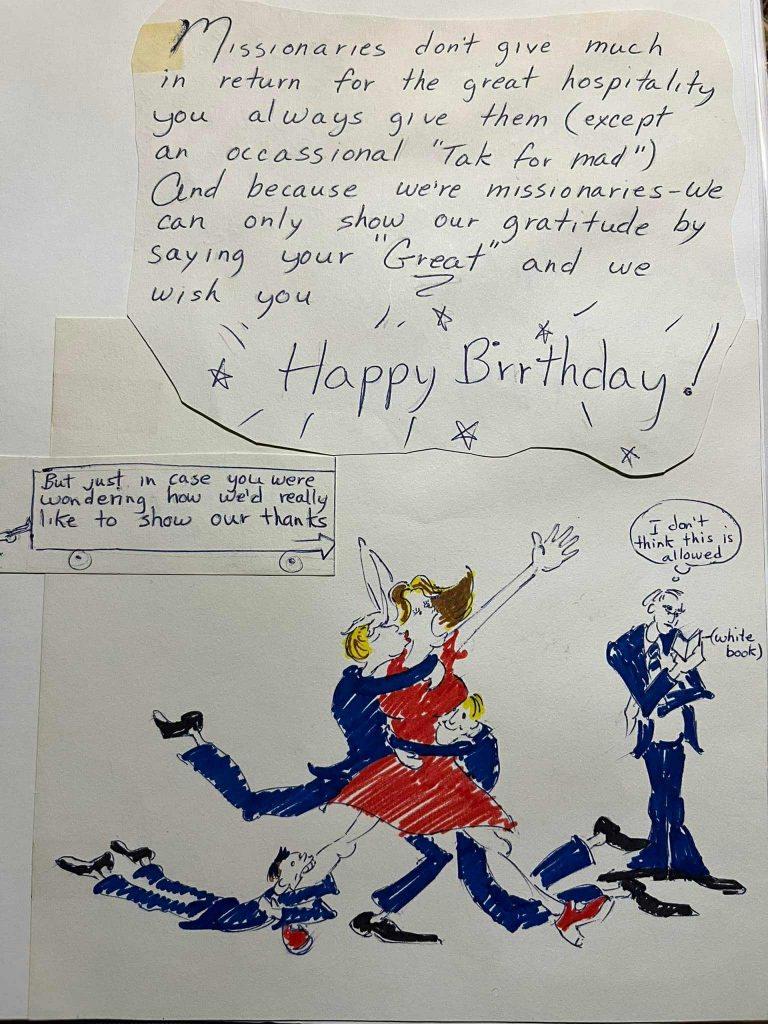 Missionaries don't give much
in return for the great hospitality
you always give them (except
an occassional "Tak for mad")
And because we're missionaries-we
can only show our gratitude by
saying your "Great" and we
wish you
Happy Birrthday!
But just in case you were
wondering how we'd really
like to show our thanks
I don't
think this is
allowed
(white
book)